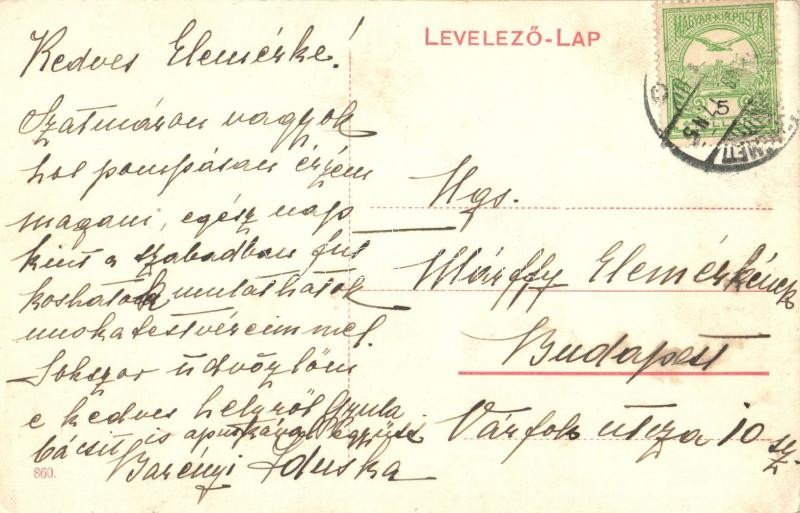 Kedves Elemérke!
Szatmáron vagyok
hol pompásan érzem
magam, egész nap
kint a szabadban fut
koshatok mulathatok
unokatestvéreimmel.
Sokszor üdvözlöm
e kedves helyről Gyula
bácsit is apukával együtt
Barényi Iduska
860.
LEVELEZŐ-LAP
MAGYAR·KIR·POSTA
5
NÉMETI
Ngs.
Márffy Elemérkének
Budapest
Várfok utcza 10 sz.